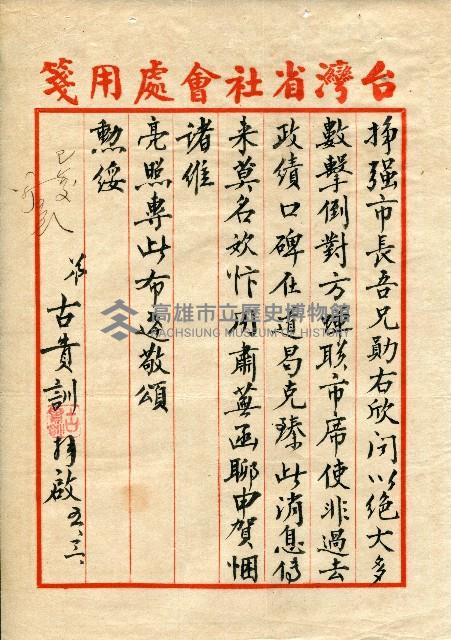 台灣省社會處用箋
掙强市長吾兄勛右欣聞以絕大多
數擊倒對方蟬聯市席使非過去
政績口碑在道曷克臻此消息傳
来莫名欢忭仍肅蕪函聊申賀悃
諸維
亮照專此布达敬頌
勳綏
弟古貴訓拜啟五、三、
已覆
高雄市立歷史博物館
KAOHSIUNG MUSEUM OF HISTORY